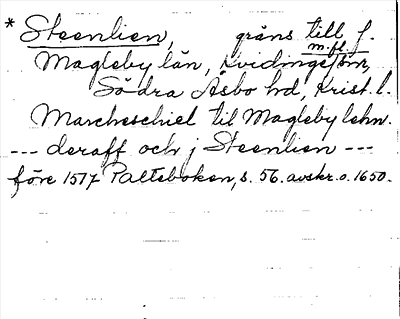 * Steenlien, gräns till f.
Magleby län, Kvidinge sn, m.fl.
Södra Åsbo hd, Krist. l.
Marcheschiel til Magleby lehn.
--- deraff och j Steenlien ---
före 1517 Paltebokon, s. 56. avskr. o. 1650.